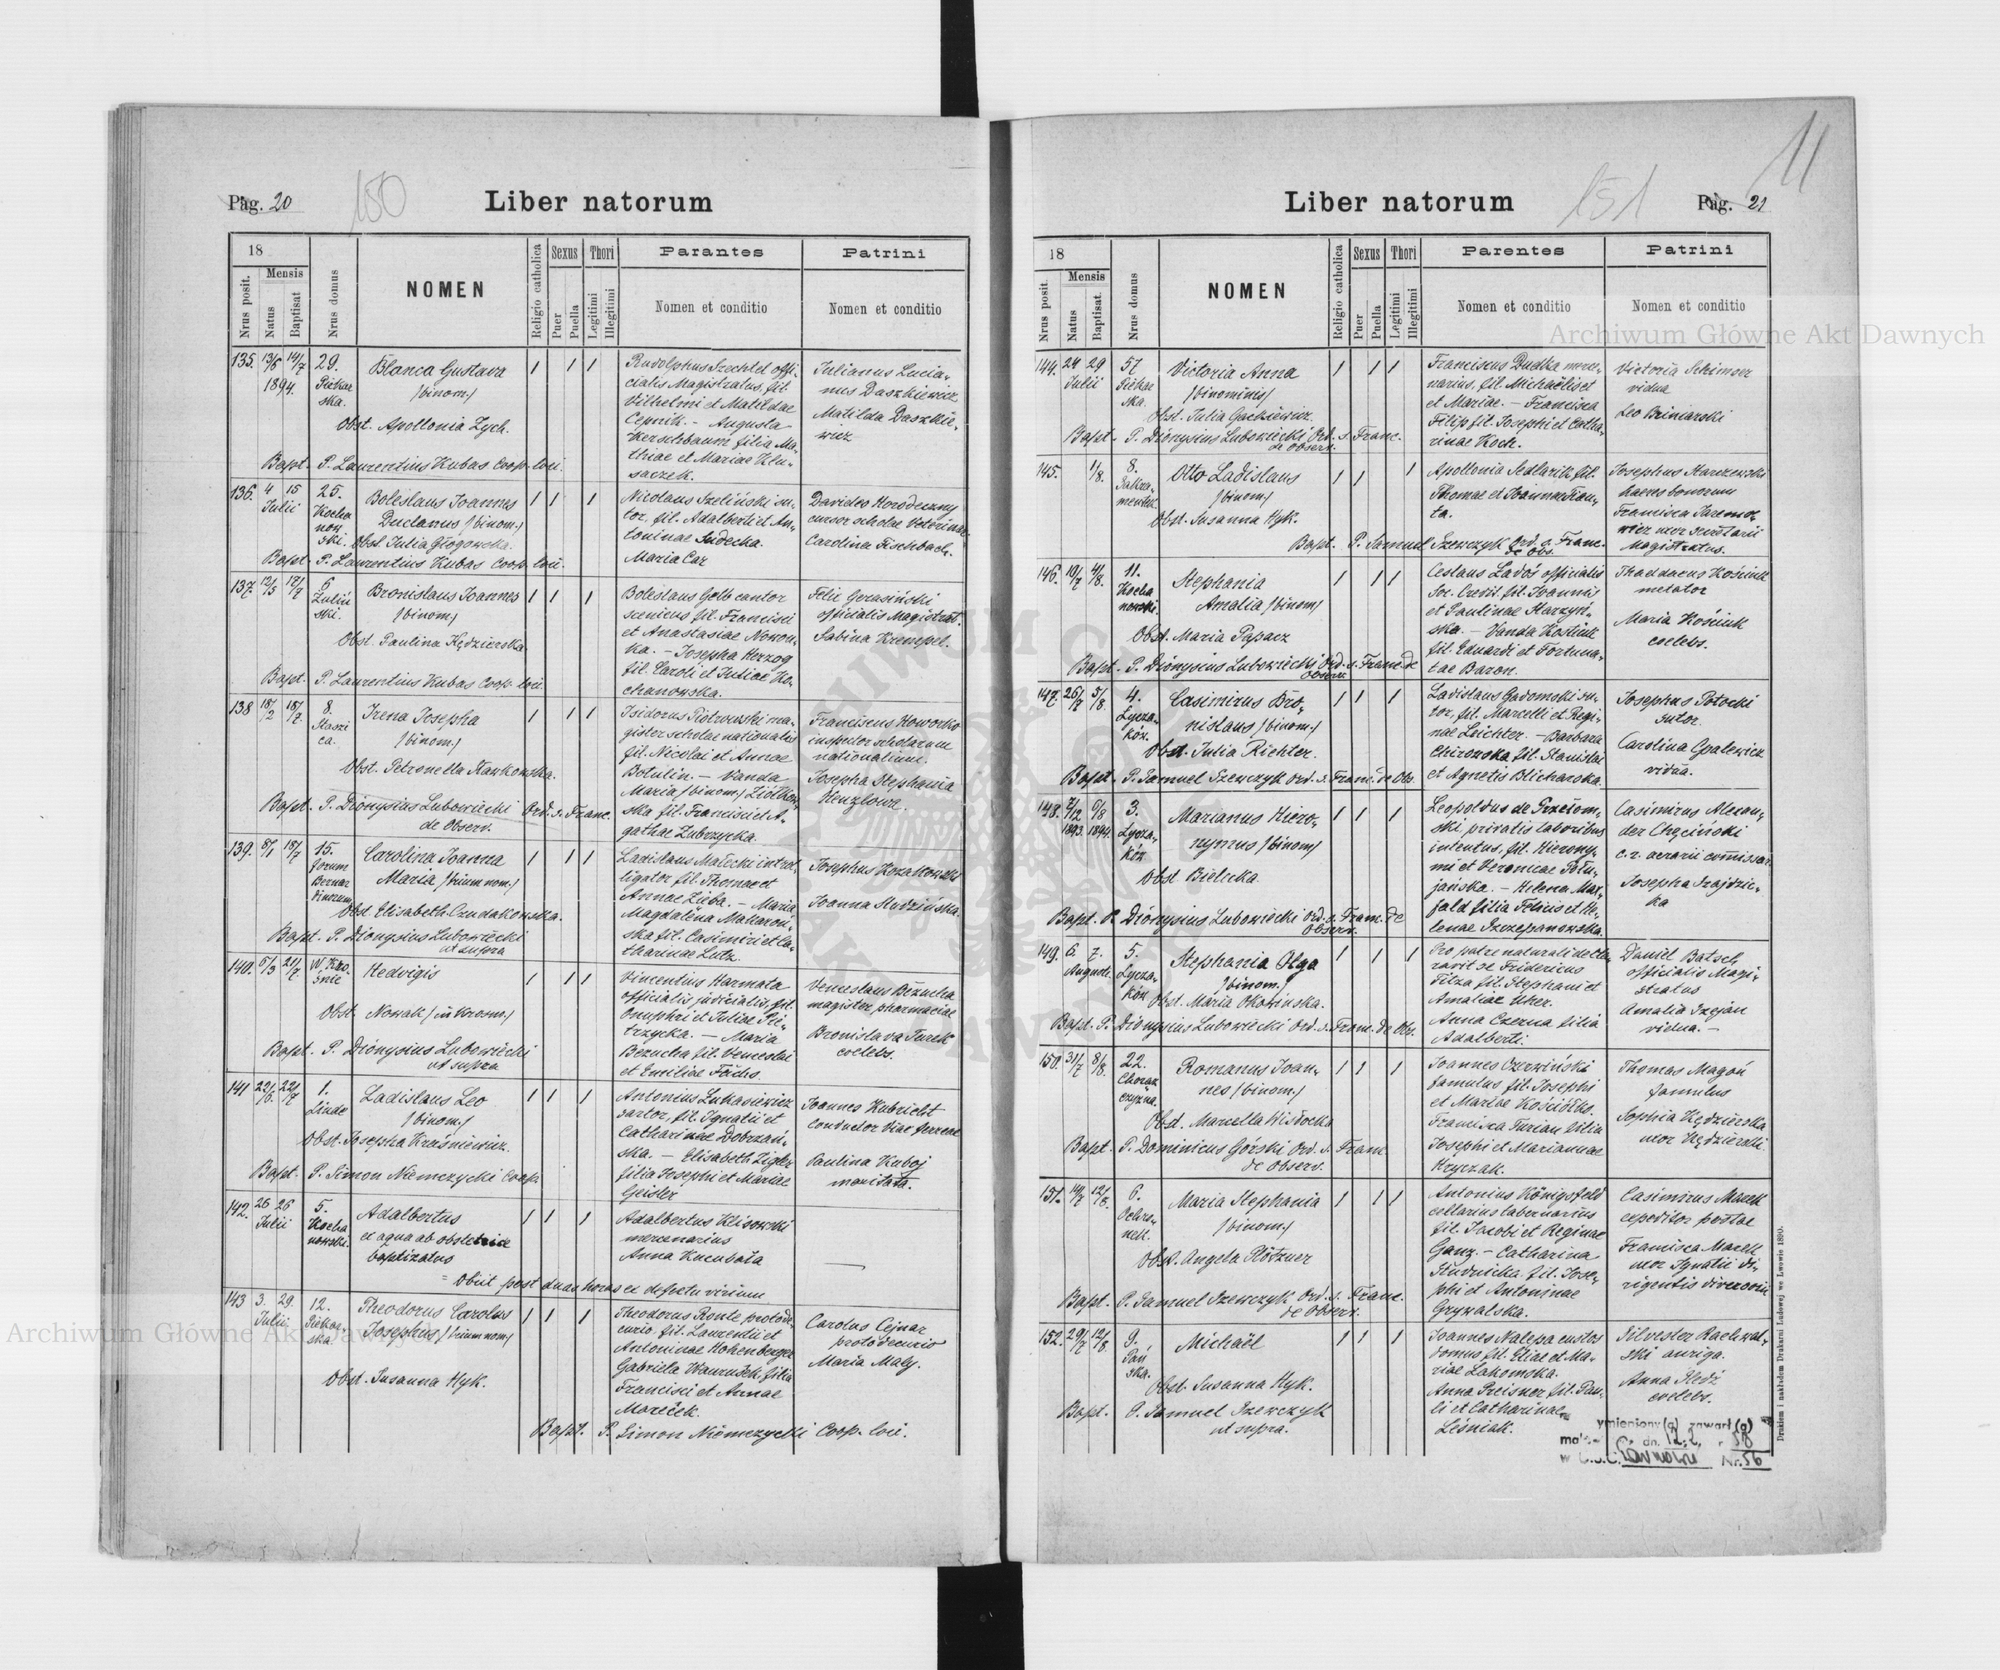 Pag. 20
150
Liber natorum
18
Mensis
Nrus posit.
Natus
Baptisat
Nrus domus
NOMEN
Religio catholica
Sexus
Puer
Puella
Thori
Legitimi
Illegitimi
Parantes
Nomen et conditio
Patrini
Nomen et conditio
135. 13/6 14/7 29.
1894. Piekar
ska.
Blanca Gustava
/binom./
Obst. Apollonia Zych.
Bapt. P. Laurentius Kubas Coop. loci.
Rudolphus Szechtel offi-
cialis Magistratus, fil.
Vilhelmi et Matildae
Cepnik. - Augusta
Kerschbaum filia Ma-
thiae et Mariae Klu-
saczek.
Julianus Lucia-
nus Daszkiewicz
Matilda Daszkie-
wicz
136. 4 15 25.
Julii Kocha
now
ski.
Boleslaus Joannes
Duclanus /binom./
Obst. Julia Głogowska.
Bapt. P. Laurentius Kubas Coop. loci.
Nicolaus Szeliński su-
tor, fil. Adalberti et An-
toninae Sudecka.
Maria Car
Davides Horodeczny
cursor scholae Veterinar.
Carolina Fischbach.
137. 12/5 17/7 6
Zuliń
ski.
Bronislaus Joannes
/binom./
Obst. Paulina Kędzierska.
Bapt. P. Laurentius Kubas Coop. loci.
Boleslaus Golb cantor
scenicus fil. Francisci
et Anastasiae Nowon-
ka. - Josepha Herzog
fil. Caroli et Juliae Ko-
chanowska.
Felix Gerasiński
officialis Magistrat.
Sabina Krempel.
138 18/2 18/7. 8.
Staszi
ca.
Irena Josepha
/binom./
Obst. Petronella Kawkowska.
Bapt. P. Dionysius Lubowiecki Ord. s. Franc.
de Observ.
Isidorus Piotrowski ma-
gister scholae nationalis
fil. Nicolai et Annae
Botulin. - Vanda
Maria /binom./ Ziółkow-
ska fil. Francisci et A-
gathae Zubrzycka.
Franciscus Howorko
inspector scholarum
nationalium.
Josepha Stephania
Wenzlowa.
139. 8/1 18/7 15.
forum
Bernar
dinorum
Carolina Joanna
Maria /trium nom./
Obst. Elisabeth Czudakowska.
Bapt. P. Dionysius Lubowiecki
ut supra
Ladislaus Małecki introl-
ligator fil. Thomae et
Annae Zięba. - Maria
Magdalena Makaroń-
ska fil. Casimiri et Ca-
tharinae Lutz.
Josephus Kozakowski
Joanna Studzińska.
140. 5/3 21/7 W Kro
śnie
Hedvigis
Obst. Nowak /in Krosno/
Bapt. P. Dionysius Lubowiecki
ut supra
Vincentius Harmata
officialis judicialis, fil.
Onuphri et Juliae Pie-
trzycka. - Maria
Bezucha fil. Venceslai
et Emiliae Fuchs.
Venceslaus Bezucha
magister pharmaciae
Bronislava Turek
coelebs.
141 22/6. 22/7 1.
Linde
Ladislaus Leo
/binom./
Obst. Josepha Krzśniewicz.
Bapt. P. Simon Niemczycki Coop.
Antonius Łukasiewicz
sartor, fil. Ignatii et
Catharinae Dobrzań-
ska. - Elisabeth Zigler
filia Josephi et Mariae
Geisler
Joannes Kubricht
conductor viae ferreae
Paulina Kuboj
maritata.
142. 26 26 5.
Julii Kocha
nowski.
Adalbertus
ex aqua ab obstetrice
baptizatus
= Obiit post duas horas ex defectu virium
Adalbertus Klisowski
mercenarius
Anna Kucubała
143 3. 29. 12.
Julii. Piekar
ska.
Theodorus Carolus
Josephus /trium nom./
Obst. Susanna Hyk.
Bapt. P. Simon Niemczycki Coop. loci.
Theodorus Ronte protode-
curio fil. Laurentii et
Antoninae Hohenberger
Gabriela Wawrušek filia
Francisci et Annae
Mareček.
Carolus Cejnar
protodecurio
Maria Maly.
11
Pag. 21
151
Liber natorum
18
Mensis
Nrus posit.
Natus
Baptisat.
Nrus domus
NOMEN
Religio catholica
Sexus
Puer
Puella
Thori
Legitimi
Illegitimi
Parentes
Nomen et conditio
Patrini
Nomen et conditio
144. 24 29 57
Julii Piekar
ska.
Victoria Anna
/binominis/
Obst. Julia Gackiewicz.
Bapt. P. Dionysius Lubowiecki Ord. s. Franc.
de Observ.
Franciscus Dudka merce-
narius, fil. Michaëlis et
et Mariae. - Francisca
Filip fil. Josephi et Catha-
rinae Koch.
Victoria Schimser
vidua
Leo Briniarski
145. 1/8. 8.
Sakra-
mentek
Otto Ladislaus
/binom./
Obst. Susanna Hyk.
Bapt. P. Samuel Szewczyk Ord. s. Franc.
de Obs.
Apollonia Sedlarik fil.
Thomae et Joannae Fion-
ta.
Josephus Starczewski
haeres bonorum
Francisca Jaremo-
wicz uxor scultarii
Magistratus.
146. 10/7 4/8. 11.
Kocha
nowski.
Stephania
Amalia /binom/
Obst. Maria Papacz
Bapt. P. Dionysius Lubowiecki Ord. s. Franc. de
Observ.
Ceslaus Ladoś officialis
Soc. Credit. fil. Joannis
et Paulinae Starzyń-
ska. - Vanda Kostiuk
fil. Eduardi et Fortuna-
tae Baron.
Thaddaeus Kościuk
metator
Maria Kościuk
coelebs.
147. 26/7 5/8. 4.
Łycza-
ków.
Casimirus Bro-
nislaus /binom./
Obst. Julia Richter.
Bapt. P. Samuel Szewczyk Ord. s. Franc. de Obs.
Ladislaus Gadomski su-
tor, fil. Marcelli et Regi-
nae Leichter. - Barbara
Chirowska fil. Stanislai
et Agnetis Blicharska.
Josephus Potocki
sutor.
Carolina Goalewicz
vidua.
148. 7/12 6/8 3.
1893. 1894. Łycza-
ków
Marianus Hiero-
nymus /binom/
Obst. Bielicka.
Bapt. P. Dionysius Lubowiecki Ord. s. Franc. de
Observ.
Leopoldus de Przełom-
ski privatis laboribus
intentus, fil. Hierony-
mi et Veronicae Potu-
jańska. - Helena Max-
fald filia Felicis et He-
lenae Szczepanowska.
Casimirus Alexan-
der Chęciński
c. r. aerarii commissar.
Josepha Szajdzic-
ka
149. 6. 7. 5.
Augusti. Łycza-
ków
Stephania Olga
/binom./
Obst. Maria Okwińska.
Bapt. P. Dionysius Lubowiecki Ord. s. Franc. de Obs.
Pro patre naturali decla-
ravit se Fridericus
Pilza fil. Stephani et
Amaliae Uher.
Anna Czerna filia
Adalberti.
Daniël Batsch
officialis Magi-
stratus
Amalia Szejan
vidua. -
150. 31/7 8/8. 22.
Chorąż
czyzna.
Romanus Joan-
nes /binom./
Obst. Marcella Wisłocka
Bapt. P. Dominicus Górski Ord. s. Franc.
de Observ.
Joannes Czerwiński
famulus fil. Josephi
et Mariae Kościółks.
Francisca Furian filia
Josephi et Mariannae
Kryczak.
Thomas Magoń
famulus
Sophia Kędzierska
uxor Kędzierski.
151. 14/7 12/8. 6.
Ochro-
nek.
Maria Stephania
/binom./
Obst. Angela Plötzner
Bapt. P. Samuel Szewczyk Ord. s. Franc.
de Observ.
Antonius Königsfeld
cellarius tabernarius
fil. Jacobi et Reginae
Ganz. - Catharina
Studnicka fil. Jose-
phi et Antoninae
Grywalska.
Casimirus Marek
expeditor postae
Francisca Marek
uxor Ignatii di-
rigentis diversorii
152. 29/7 12/8. 9.
Pań
ska.
Michaël
Obst. Susanna Hyk.
Bapt. P. Samuel Szewczyk
ut supra.
Joannes Nalepa custos
domus fil. Eliae et Ma-
riae Lakomska.
Anna Preisner fil. Pau-
li et Catharinae
Leśniak.
Silvester Raclewal-
ski auriga.
Anna Śledź
coelebs.
ymieniony(a) zawarł(a)
dn. 12.2. 58
Tarnowie Nr. 56
Drukiem i nakładem Drukarni Ludowej we Lwowie 1890.
Archiwum Główne Akt Dawnych
Archiwum Główne Akt Dawnych